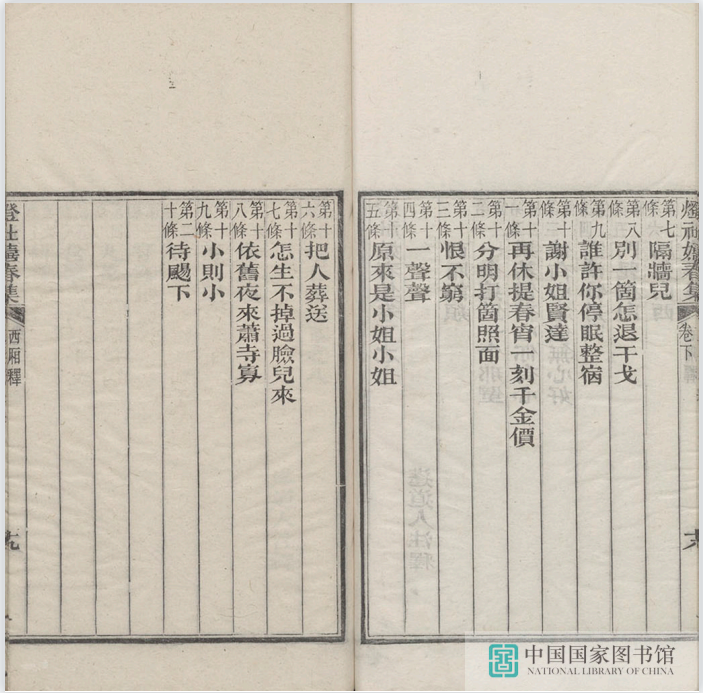 燈社嬉春集 卷下
第七條 隔牆兒
第八條 別一箇怎退干戈
第九條 誰許你停眠整宿
第十條 謝小姐賢達
第十一條 再休提春宵一刻千金價
第十二條 分明打箇照面
第十三條 恨不窮
第十四條 一聲聲
第十五條 原來是小姐小姐
第十六條 把人葬送
第十七條 怎生不掉過臉兒來
第十八條 依舊夜來蕭寺寡
第十九條 小則小
第二十條 待颺下
燈社嬉春集 西廂釋
中国国家图书馆
NATIONAL LIBRARY OF CHINA